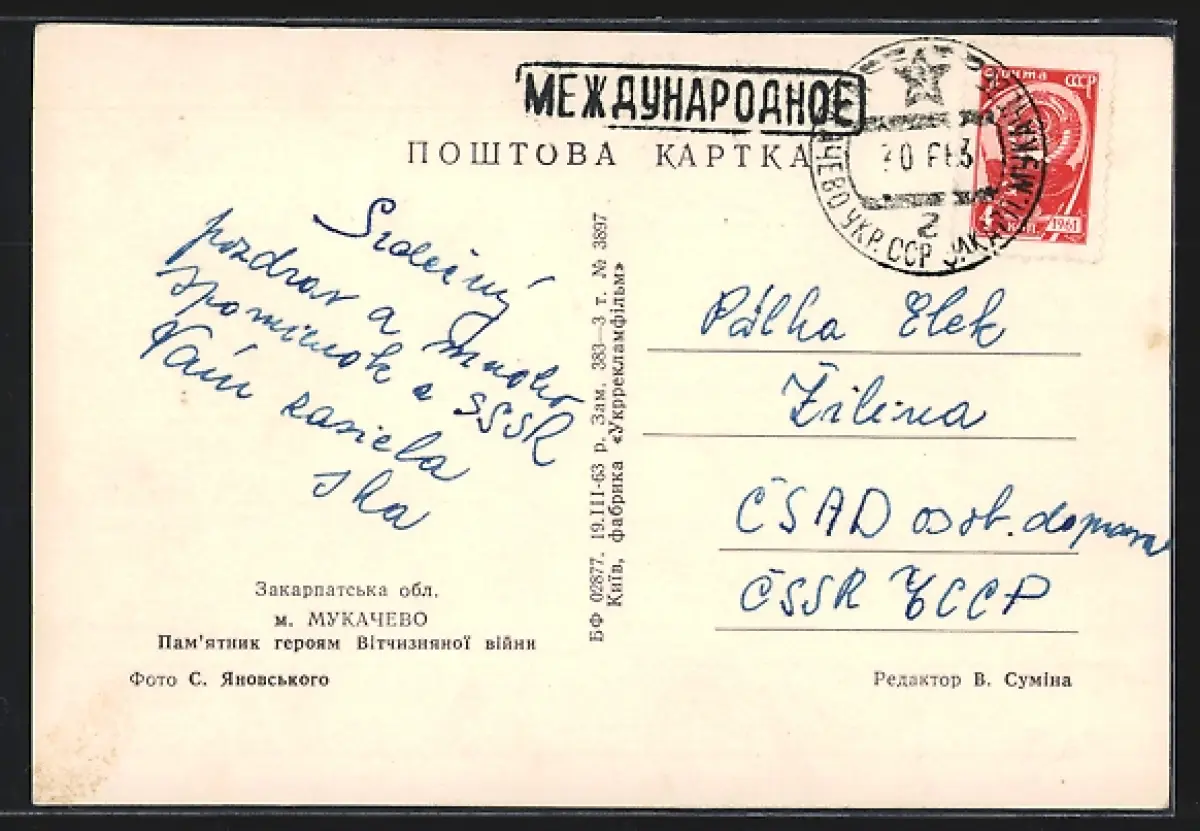 МЕЖДУНАРОДНОЕ
ПОШТОВА КАРТКА
почта СССР
4 коп. 1961
УКР. ССР
2
Srdečný
pozdrav a mnoho
spomienok z SSSR
Vám zasiela
Pálka Elek
Žilina
ČSAD osob. doprava
ČSSR ЧССР
БФ 02877. 19.III-63 р. Зам. 383—3 т. № 3897
Київ, фабрика «Укррекламфільм»
Закарпатська обл.
м. МУКАЧЕВО
Пам'ятник героям Вітчизняної війни
Фото С. Яновського
Редактор В. Суміна